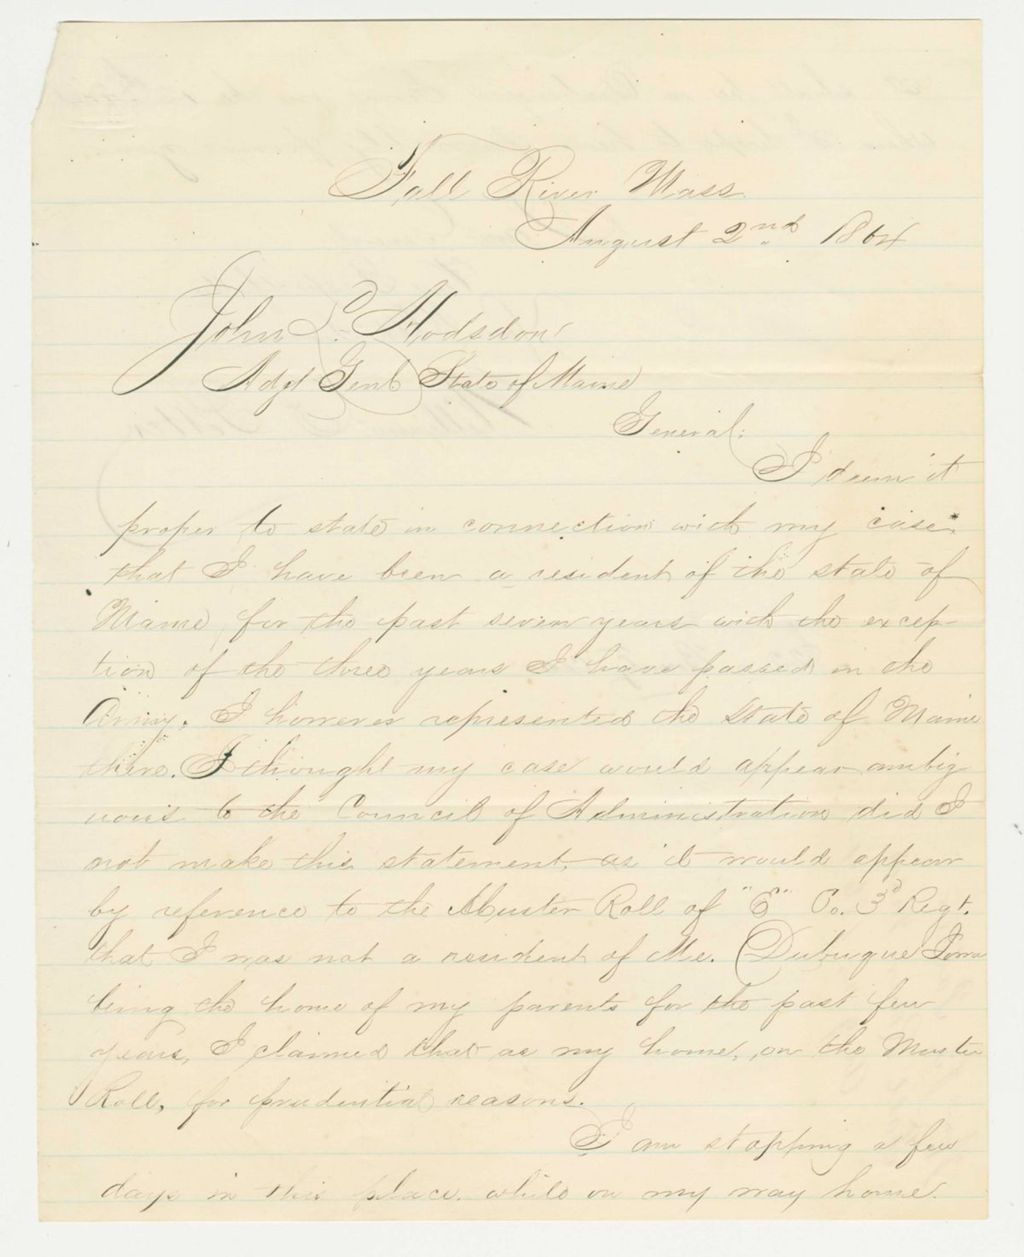 Fall River Mass
August 2nd 1864
John L. Hodsdon
Adjt Genl State of Maine
General:
I deem it
proper to state in connection with my case
that I have been a resident of the state of
Maine, for the past seven years with the excep-
tion of the three years I have passed in the
Army. I however represented the State of Maine
there. I thought my case would appear ambig
uous to the Council of Administration did I
not make this statement, as it would appear
by reference to the Muster Roll of "E" Co. 3d Regt.
that I was not a resident of Me. (Dubuque Iowa
being the home of my parents for the past few
years, I claimed that as my home, on the Muster
Roll, for prudential reasons.
I am stopping a few
days in this place while on my way home.